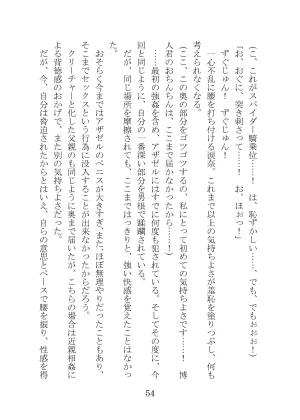 （こ、これがスパイダー騎乗位……！　は、恥ずかしい……、でも、でもぉぉぉ！）
　ずぐじゅん！　ずぐじゅん！
（お、おぐに、突き刺さって……！　お、ほぉっ！）
　一心不乱に腰を打ち付ける涙奈。これまで以上の気持ちよさが羞恥を塗りつぶし、何も
考えられなくなる。
（ここ、この奥の部分をゴツゴツするの、私にとって初めての気持ちよさです……！　博
人君のおちんちんは、ここまで届かなかったから……！）
　……最初の強姦を含め、アザゼルにはすでに何度も犯されている。そしてその度に、今
回と同じように、自分の一番深い部分を男根で蹂躙されている。
　だが、同じ場所を摩擦されても、ここまではっきりと、強い快感を覚えたことはなかっ
た。
　おそらく今まではアザゼルのペニスが大きすぎ、またほぼ無理やりだったこともあり、
そこまでセックスという行為に没入することが出来なかったからだろう。
　クリーチャーと化した父親のも同じように奥まで届いたが、こちらの場合は近親相姦に
よる背徳感のおかげで、また別の気持ちよさだった。
　だが、今、自分は脅迫されたからとはいえ、自らの意思とペースで腰を振り、性感を得
54